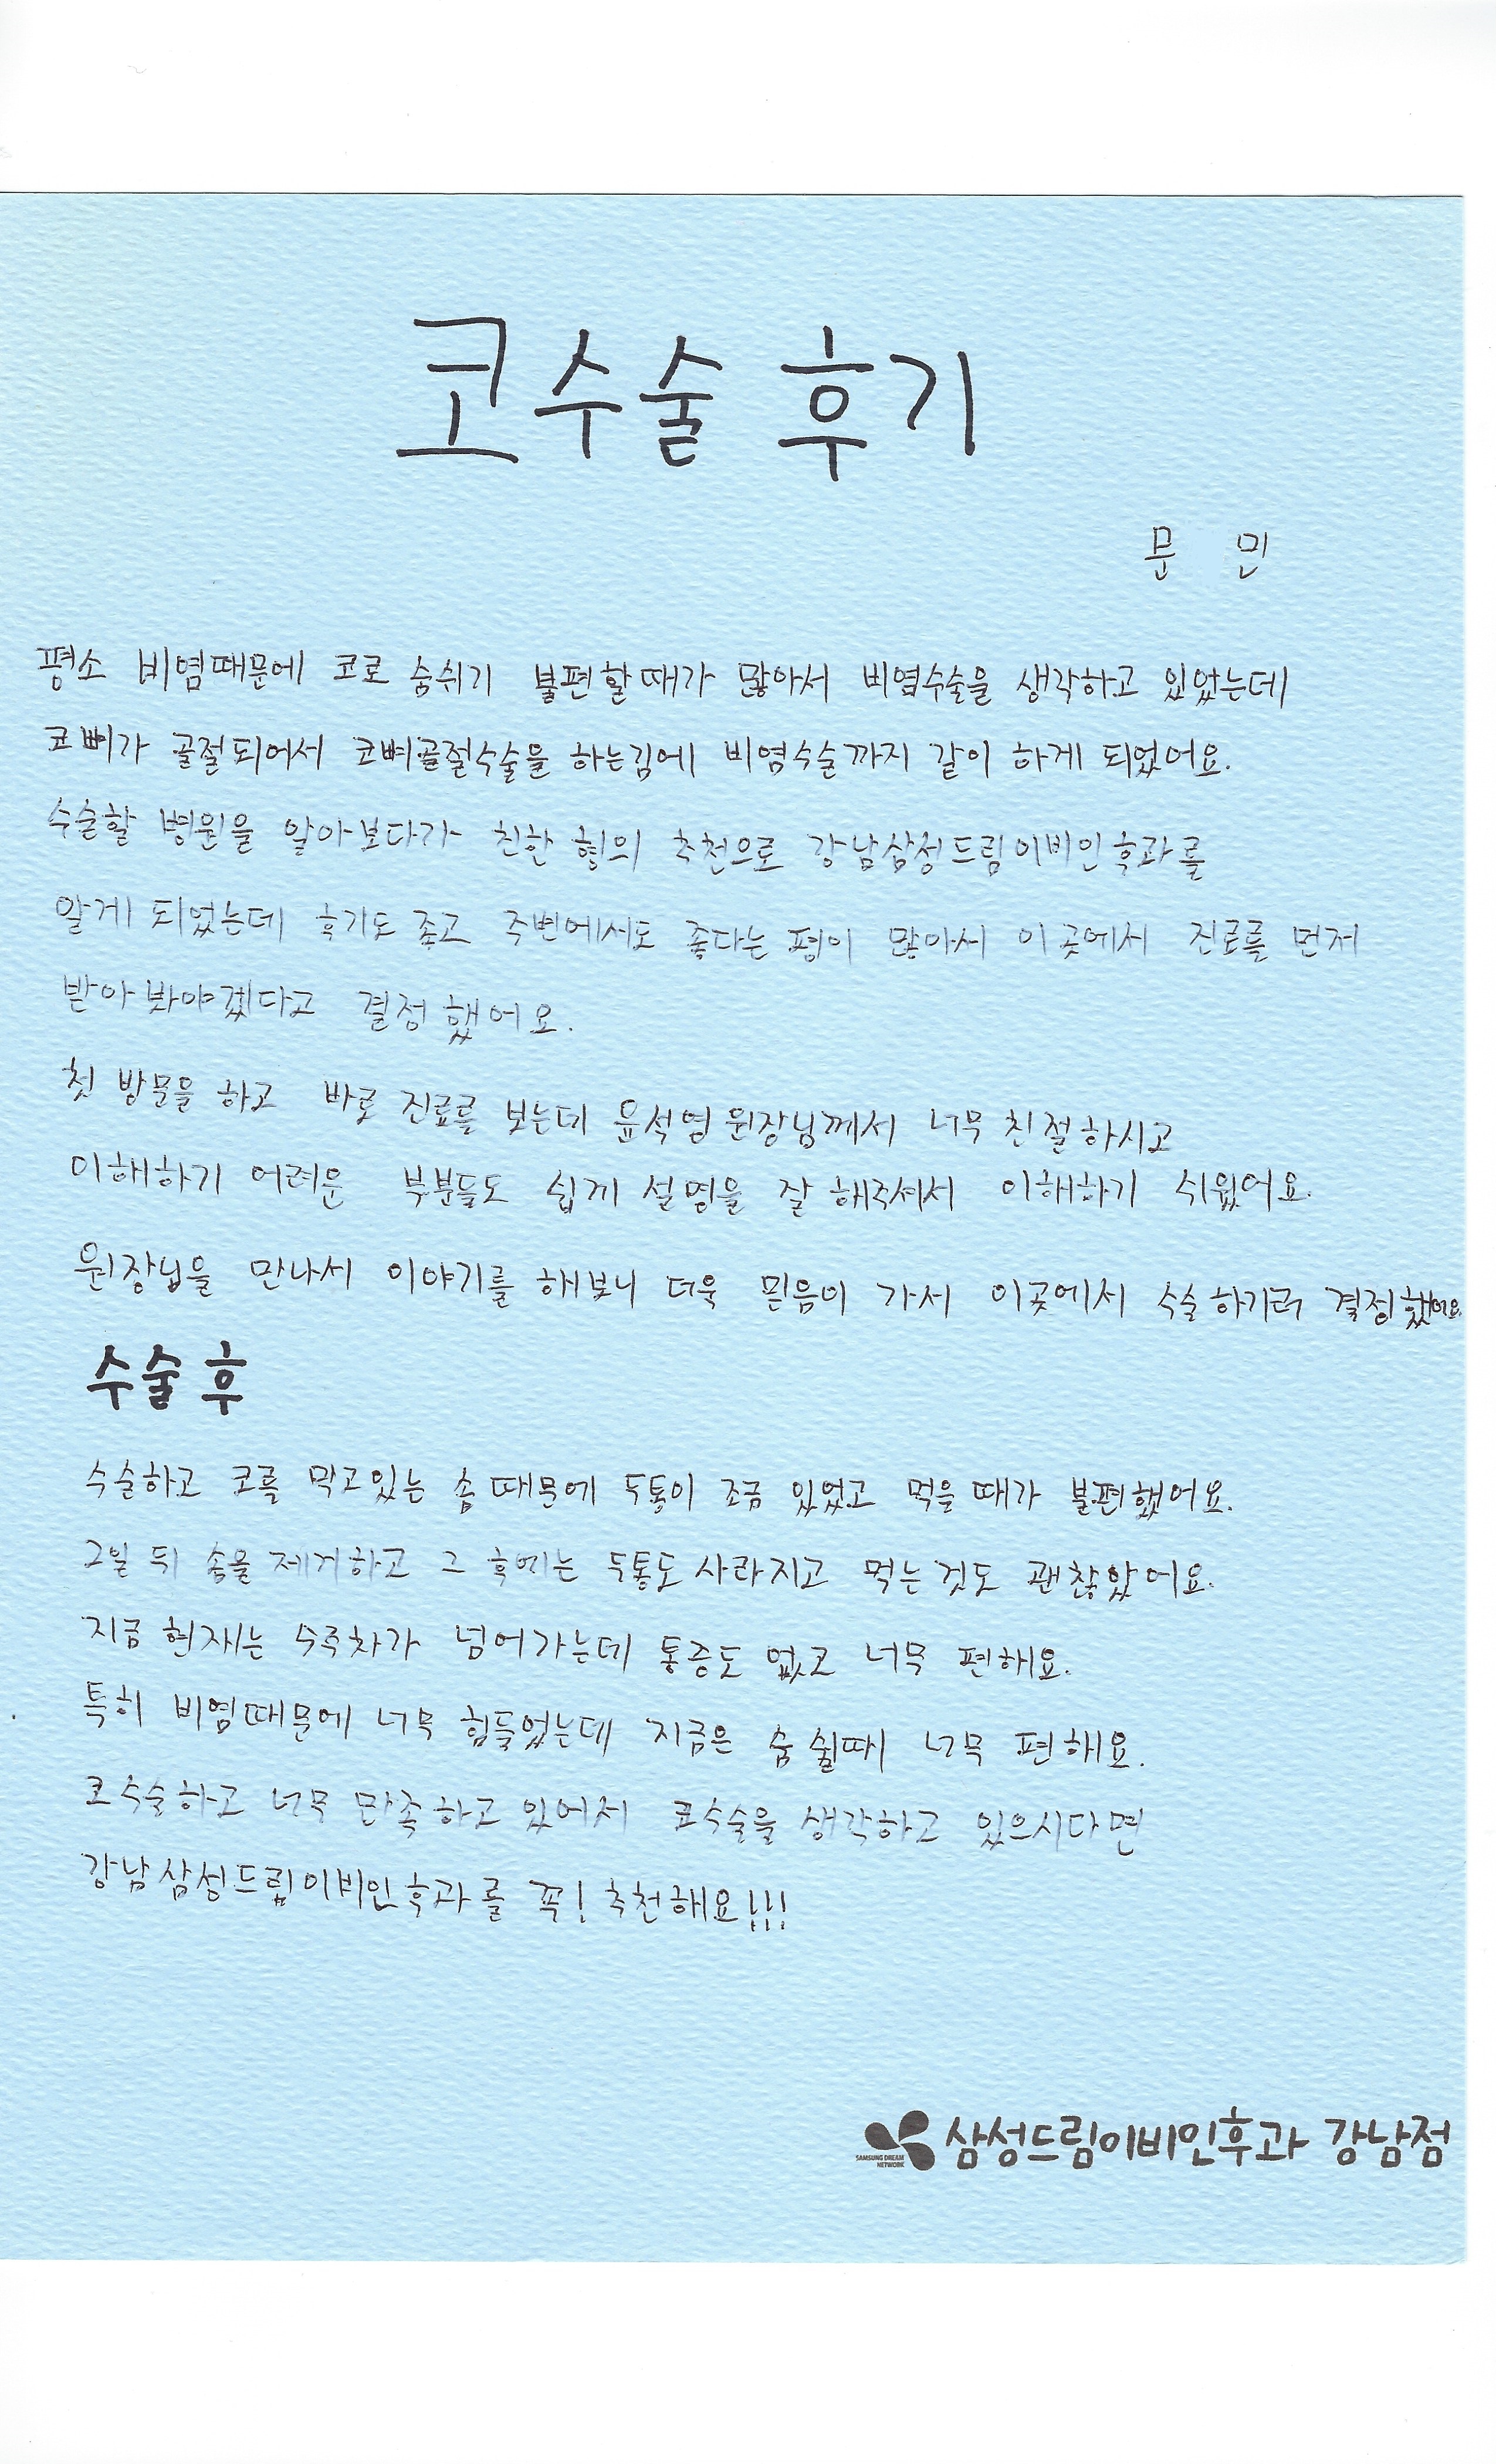 코수술 후기
문 민
평소 비염때문에 코로 숨쉬기 불편할때가 많아서 비염수술을 생각하고 있었는데
코뼈가 골절되어서 코뼈골절수술을 하는김에 비염수술까지 같이 하게 되었어요.
수술할 병원을 알아보다가 친한 형의 추천으로 강남삼성드림이비인후과를
알게 되었는데 후기도 좋고 주변에서도 좋다는 평이 많아서 이곳에서 진료를 먼저
받아봐야겠다고 결정했어요.
첫 방문을 하고 바로 진료를 보는데 윤석영 원장님께서 너무 친절하시고
이해하기 어려운 부분들도 쉽게 설명을 잘 해주셔서 이해하기 쉬웠어요.
원장님을 만나서 이야기를 해보니 더욱 믿음이 가서 이곳에서 수술하기로 결정했어요.
수술 후
수술하고 코를 막고있는 솜 때문에 두통이 조금 있었고 먹을때가 불편했어요.
2일 뒤 솜을 제거하고 그 후에는 두통도 사라지고 먹는것도 괜찮았어요.
지금 현재는 넘어가는데 통증도 없고 너무 편해요.
특히 비염때문에 너무 힘들었는데 지금은 숨 쉴때 너무 편해요.
코수술하고 너무 만족하고 있어서 코수술을 생각하고 있으시다면
강남삼성드림이비인후과를 꼭! 추천해요!!!
SAMSUNG DREAM NETWORK 삼성드림이비인후과 강남점